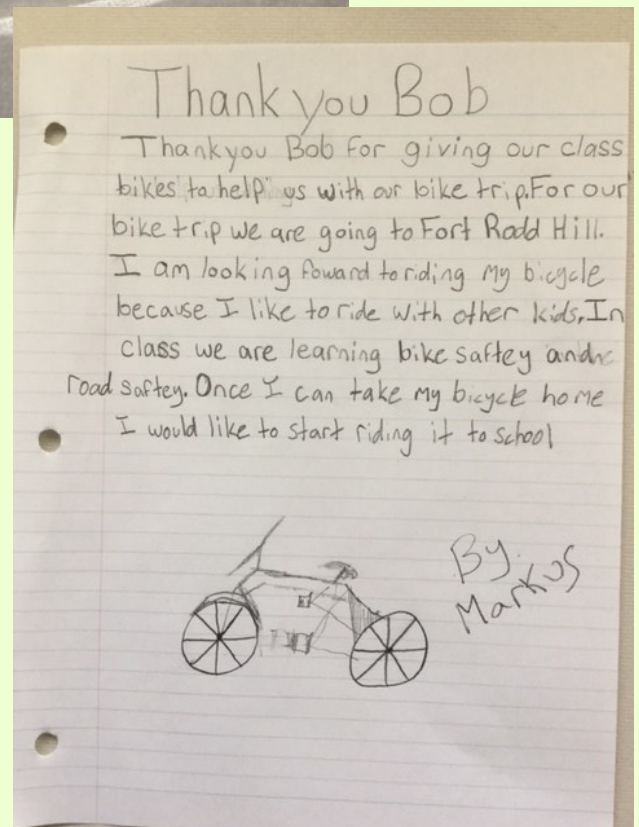 Thank you Bob
Thankyou Bob for giving our class
bikes to help us with our bike trip. For our
bike trip we are going to Fort Rodd Hill.
I am looking foward to riding my bicycle
because I like to ride with other kids. In
class we are learning bike saftey and
road saftey. Once I can take my bicycle home
I would like to start riding it to school
By
Markus